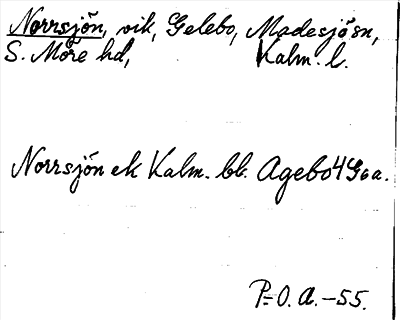 Norrsjön, vik, Gelebo, Madesjö sn,
S. Möre hd, Kalm. l.
Norrsjön ek Kalm. bl. Agebo 4 G6a.
P=O. A. -55.